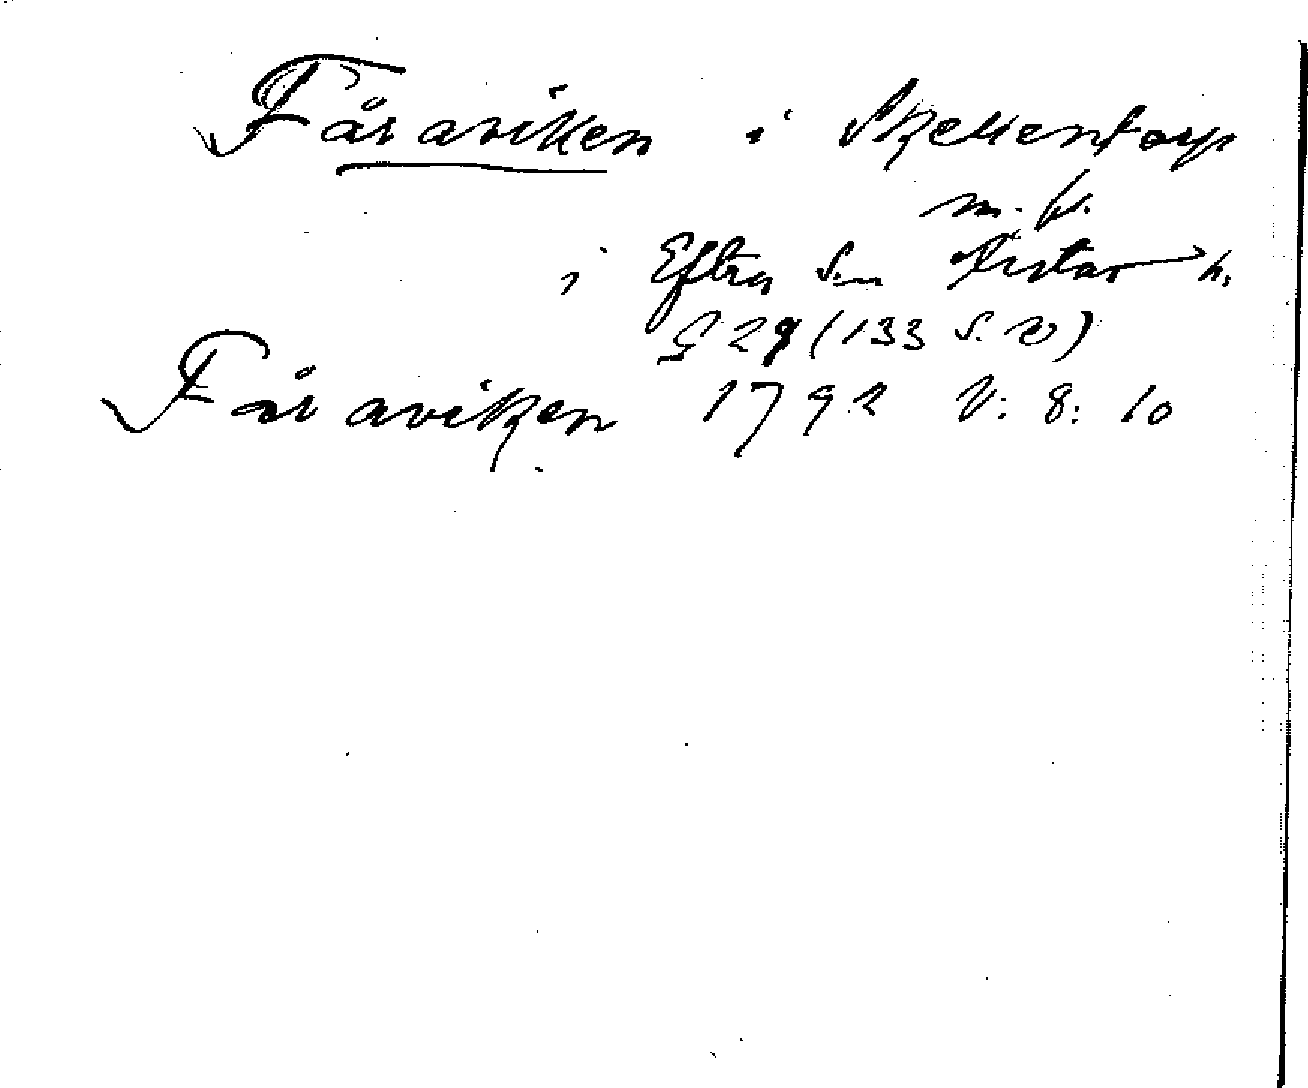 Fåraviken i Skellentorp
m. fl.
i Eftra sn Årstad h.
G 29 (133 S. V)
Fåraviken 1792 V: 8: 10